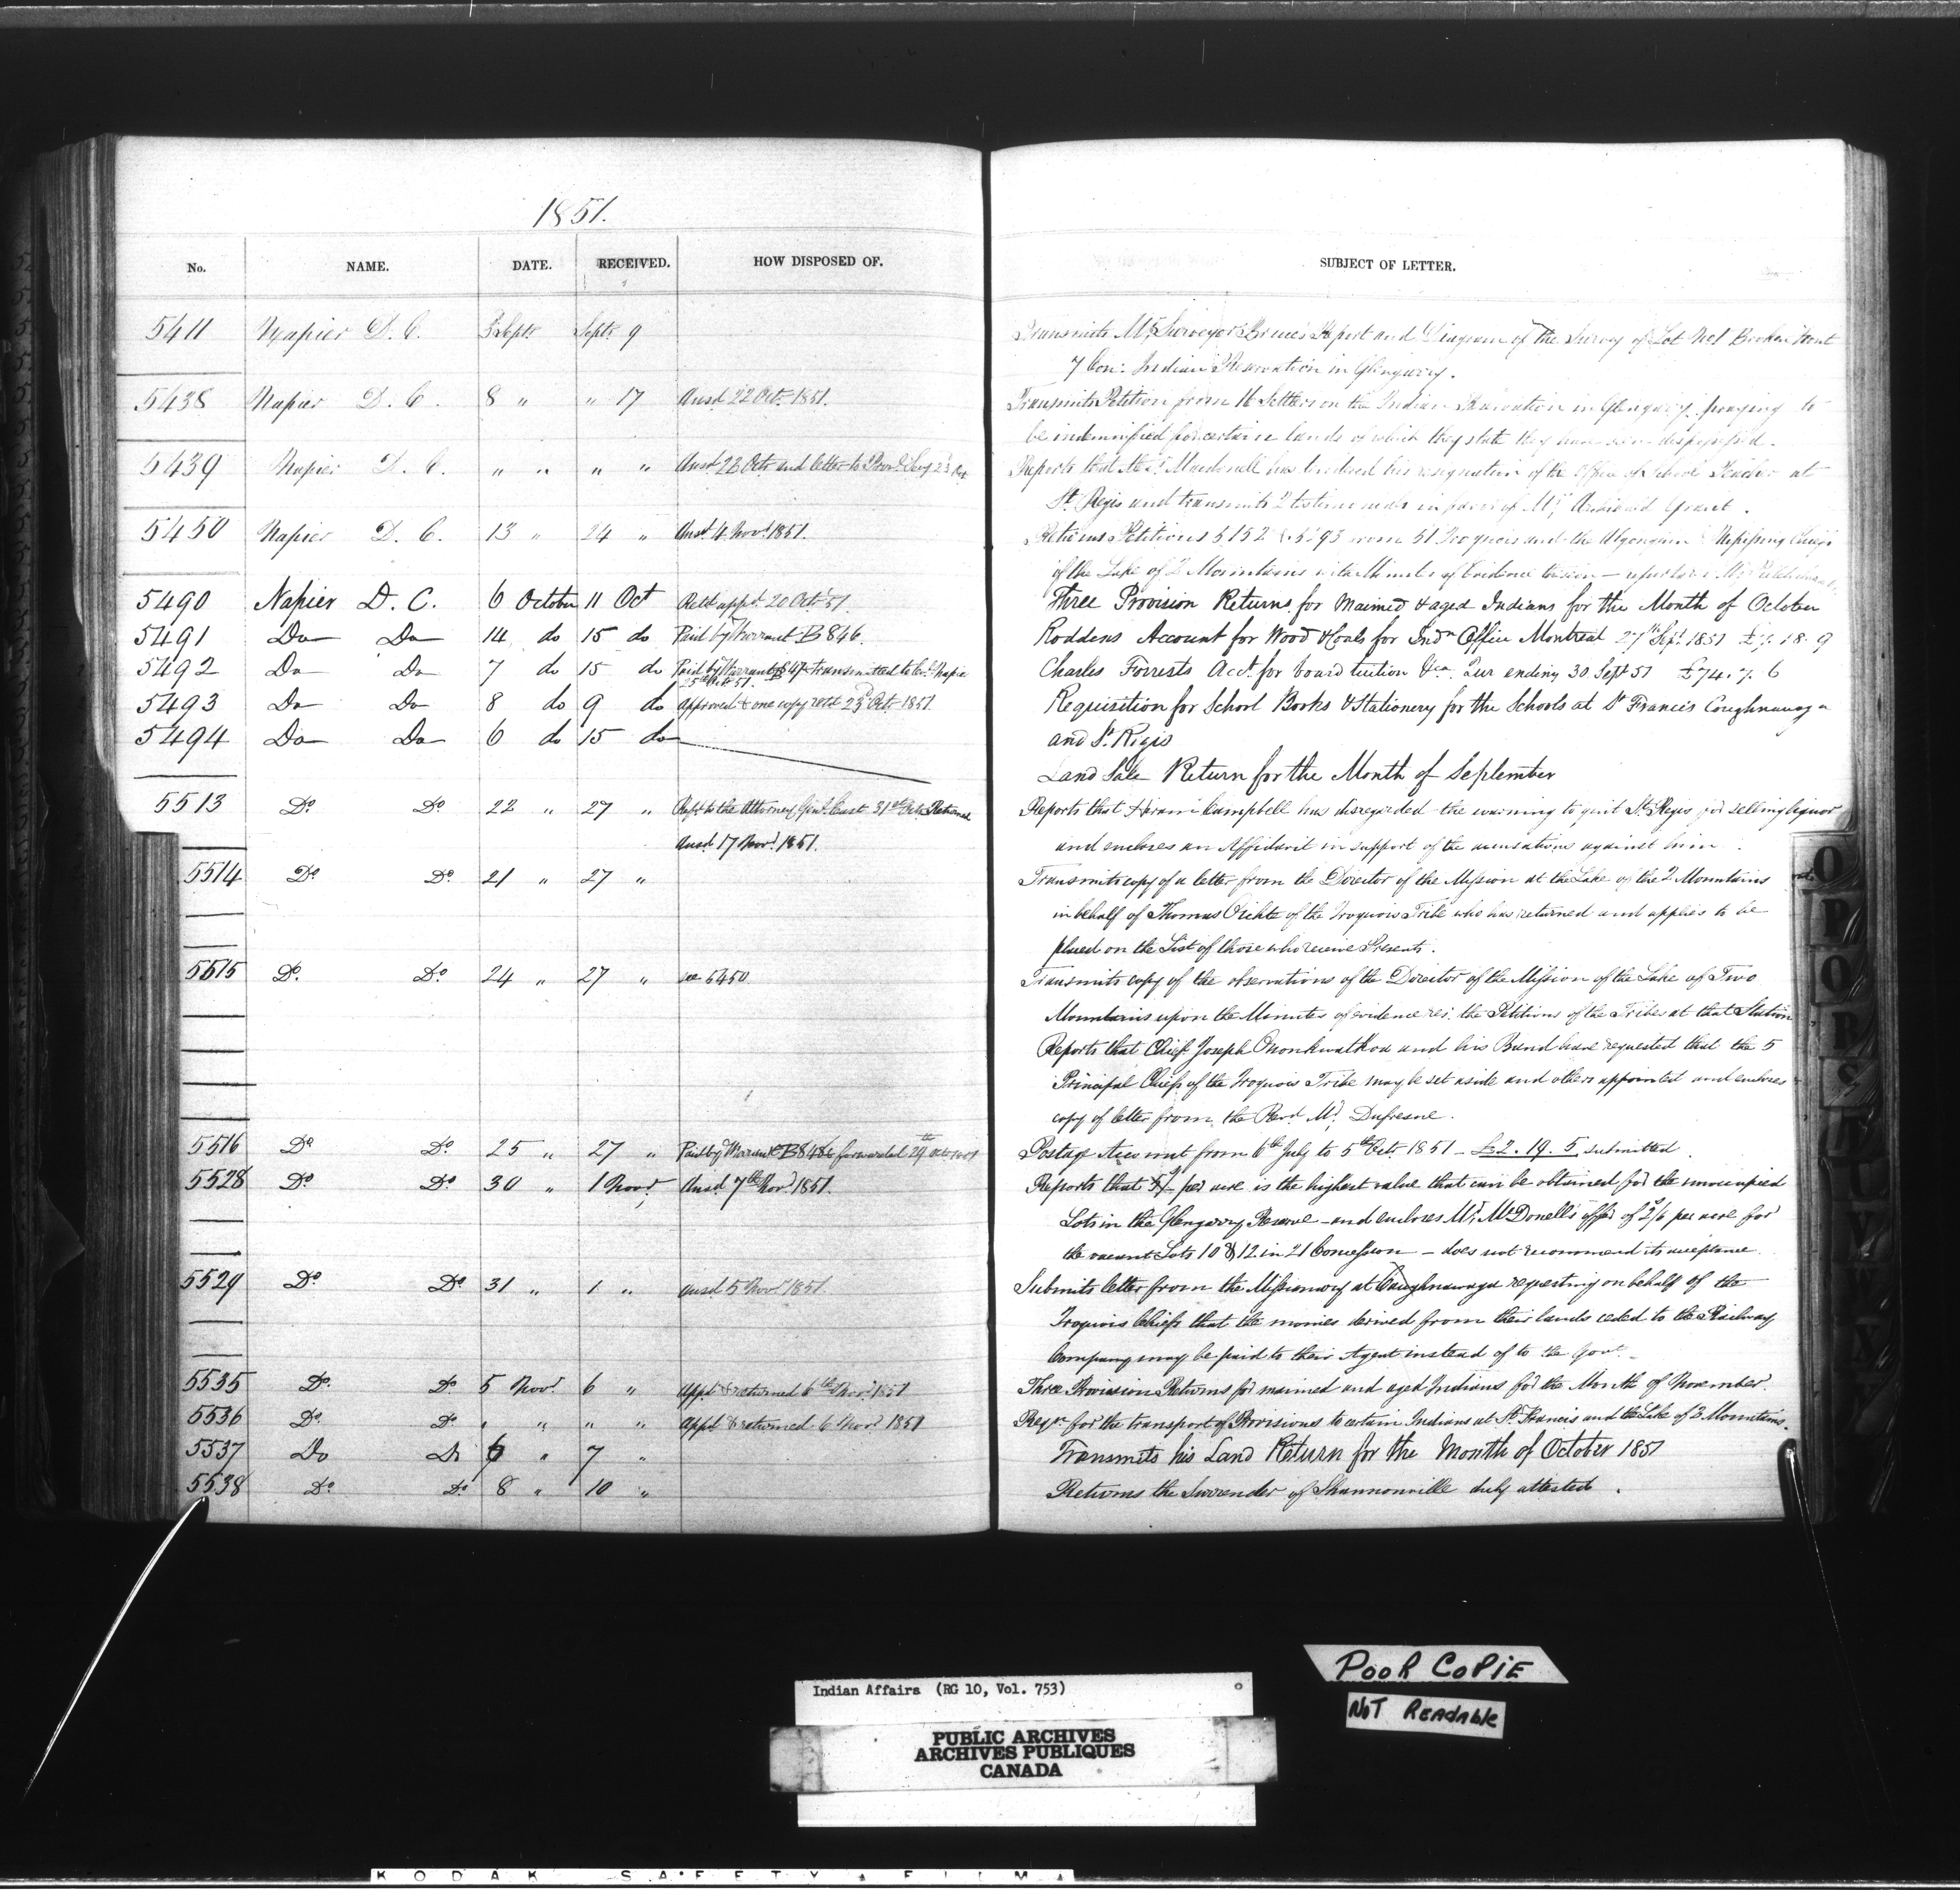 1851.
No. NAME. DATE. RECEIVED. HOW DISPOSED OF. SUBJECT OF LETTER.
5411 Napier D. C. 3 Septr Septr 9 Transmits Mr Surveyor Bruce's Report and Diagram of the Survey of Lot No 1 Broken Front
7 Con: Indian Reservation in Glengarry.
5438 Napier D. C. 8 " " 17 Ansd 22 Octr 1851. Transmits Petition from 16 Settlers on the Indian Reservation in Glengarry praying to
be indemnified for certain lands of which they state they have been dispossessed.
5439 Napier D. C. " " " " Ansd 22 Octr and letter to Provl Secy 23 Oct Reports that Mr Macdonell has tendered his resignation of the office of School Teacher at
St Regis and transmits 2 testimonials in favor of Mr Grant.
5450 Napier D. C. 13 " 24 " Ansd 4 Novr 1851. Returns Petitions 5152 & 5293 from 51 Iroquois and the Algonquin & Nipissing Chiefs
of the Lake of 2 Mountains with Minutes of Evidence
5490 Napier D. C. 6 October 11 Oct Retd appd 20 Oct 51. Three Provision Returns for Maimed & aged Indians for the Month of October
5491 Do Do 14 do 15 do Paid by Warrant B 846. Roddens Account for Wood & Coals for Indn Office Montreal 27th Sept 1851 £7. 18. 9
5492 Do Do 7 do 15 do Paid by Warrant B 847 transmitted to Col. Napier
25th Octr 51. Charles Forrests Acct for board tuition &ca Qur ending 30 Sept 51 £74. 7. 6
5493 Do Do 8 do 9 do approved & one copy retd 23d Octr 1851 Requisition for School Books & Stationery for the Schools at St Francis Coughnawaga
and St Regis
5494 Do Do 6 do 15 do Land Sale Return for the Month of September
5513 Do Do 22 " 27 " Refd to the Attorney Genl East 31st Octr Returned
Ansd 17 Novr 1851. Reports that Hiram Campbell has disregarded the warning to quit St Regis for selling liquor
and encloses an Affidavit in support of the accusations against him.
5514 Do Do 21 " 27 " Transmits copy of a letter from the Director of the Mission at the Lake of the 2 Mountains
in behalf of Thomas of the Iroquois Tribe who has returned and applies to be
placed on the List of those who receive Presents.
5515 Do Do 24 " 27 " see 5450. Transmits copy of the observations of the Director of the Mission of the Lake of Two
Mountains upon the Minutes of evidence res: the Petitions of the Tribes at that Station
Reports that Chief Joseph Ononkwatkoa and his Band have requested that the 5
Principal Chiefs of the Iroquois Tribe may be set aside and others appointed and encloses
copy of letter from the Revd Mr Dufresne.
5516 Do Do 25 " 27 " Paid by Warrant B848 & forwarded 29th Octr 1851 Postage Account from 6th July to 5th Octr 1851 - £2. 19. 5. submitted.
5528 Do Do 30 " 1 Novr Ansd 7th Novr 1851. Reports that 5/- per acre is the highest value that can be obtained for the unoccupied
Lots in the Glengarry Reserve - and encloses Mr McDonell's offer of 2/6 per acre for
the vacant Lots 10 & 12 in 21 Concession - does not recommend its acceptance.
5529 Do Do 31 " 1 " ansd 5 Novr 1851. Submits letter from the Missionary at Caughnawaga requesting on behalf of the
Iroquois Chiefs that the monies derived from their lands ceded to the Railway
Company may be paid to their Agent instead of to the Govt.
5535 Do Do 5 Novr 6 " Appd & returned 6th Novr 1851 Three Provision Returns for maimed and aged Indians for the Month of November.
5536 Do Do " " " " Appd & returned 6 Novr 1851 Reqn for the transport of Provisions to certain Indians at St Francis and the Lake of 2 Mountains.
5537 Do Do 6 " 7 " Transmits his Land Return for the Month of October 1851
5538 Do Do 8 " 10 " Returns the Surrender of Shannonville duly attested.
Indian Affairs (RG 10, Vol. 753)
PUBLIC ARCHIVES
ARCHIVES PUBLIQUES
CANADA
POOR COPIE
NOT READABLE
KODAK SAFETY FILM